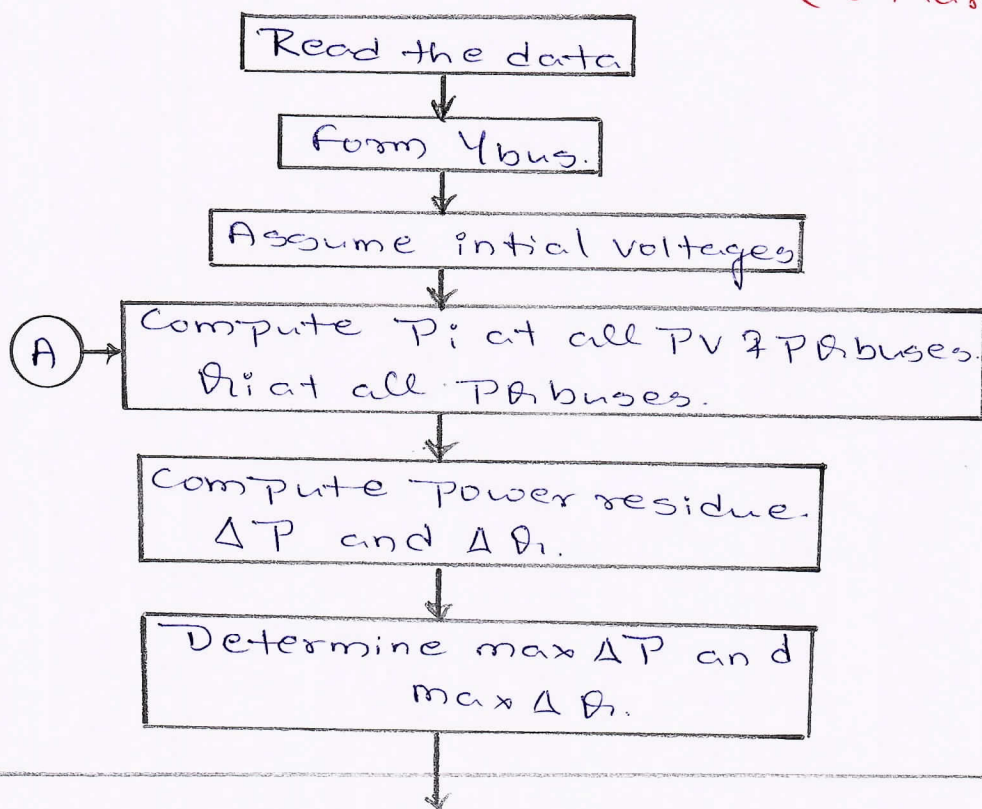 Read the data
Form Ybus.
Assume intial voltages
Compute Pi at all PV & PQ buses.
A
Qi at all PQ buses.
Compute power residue.
ΔP and ΔQ.
Determine max ΔP and
max ΔQ.